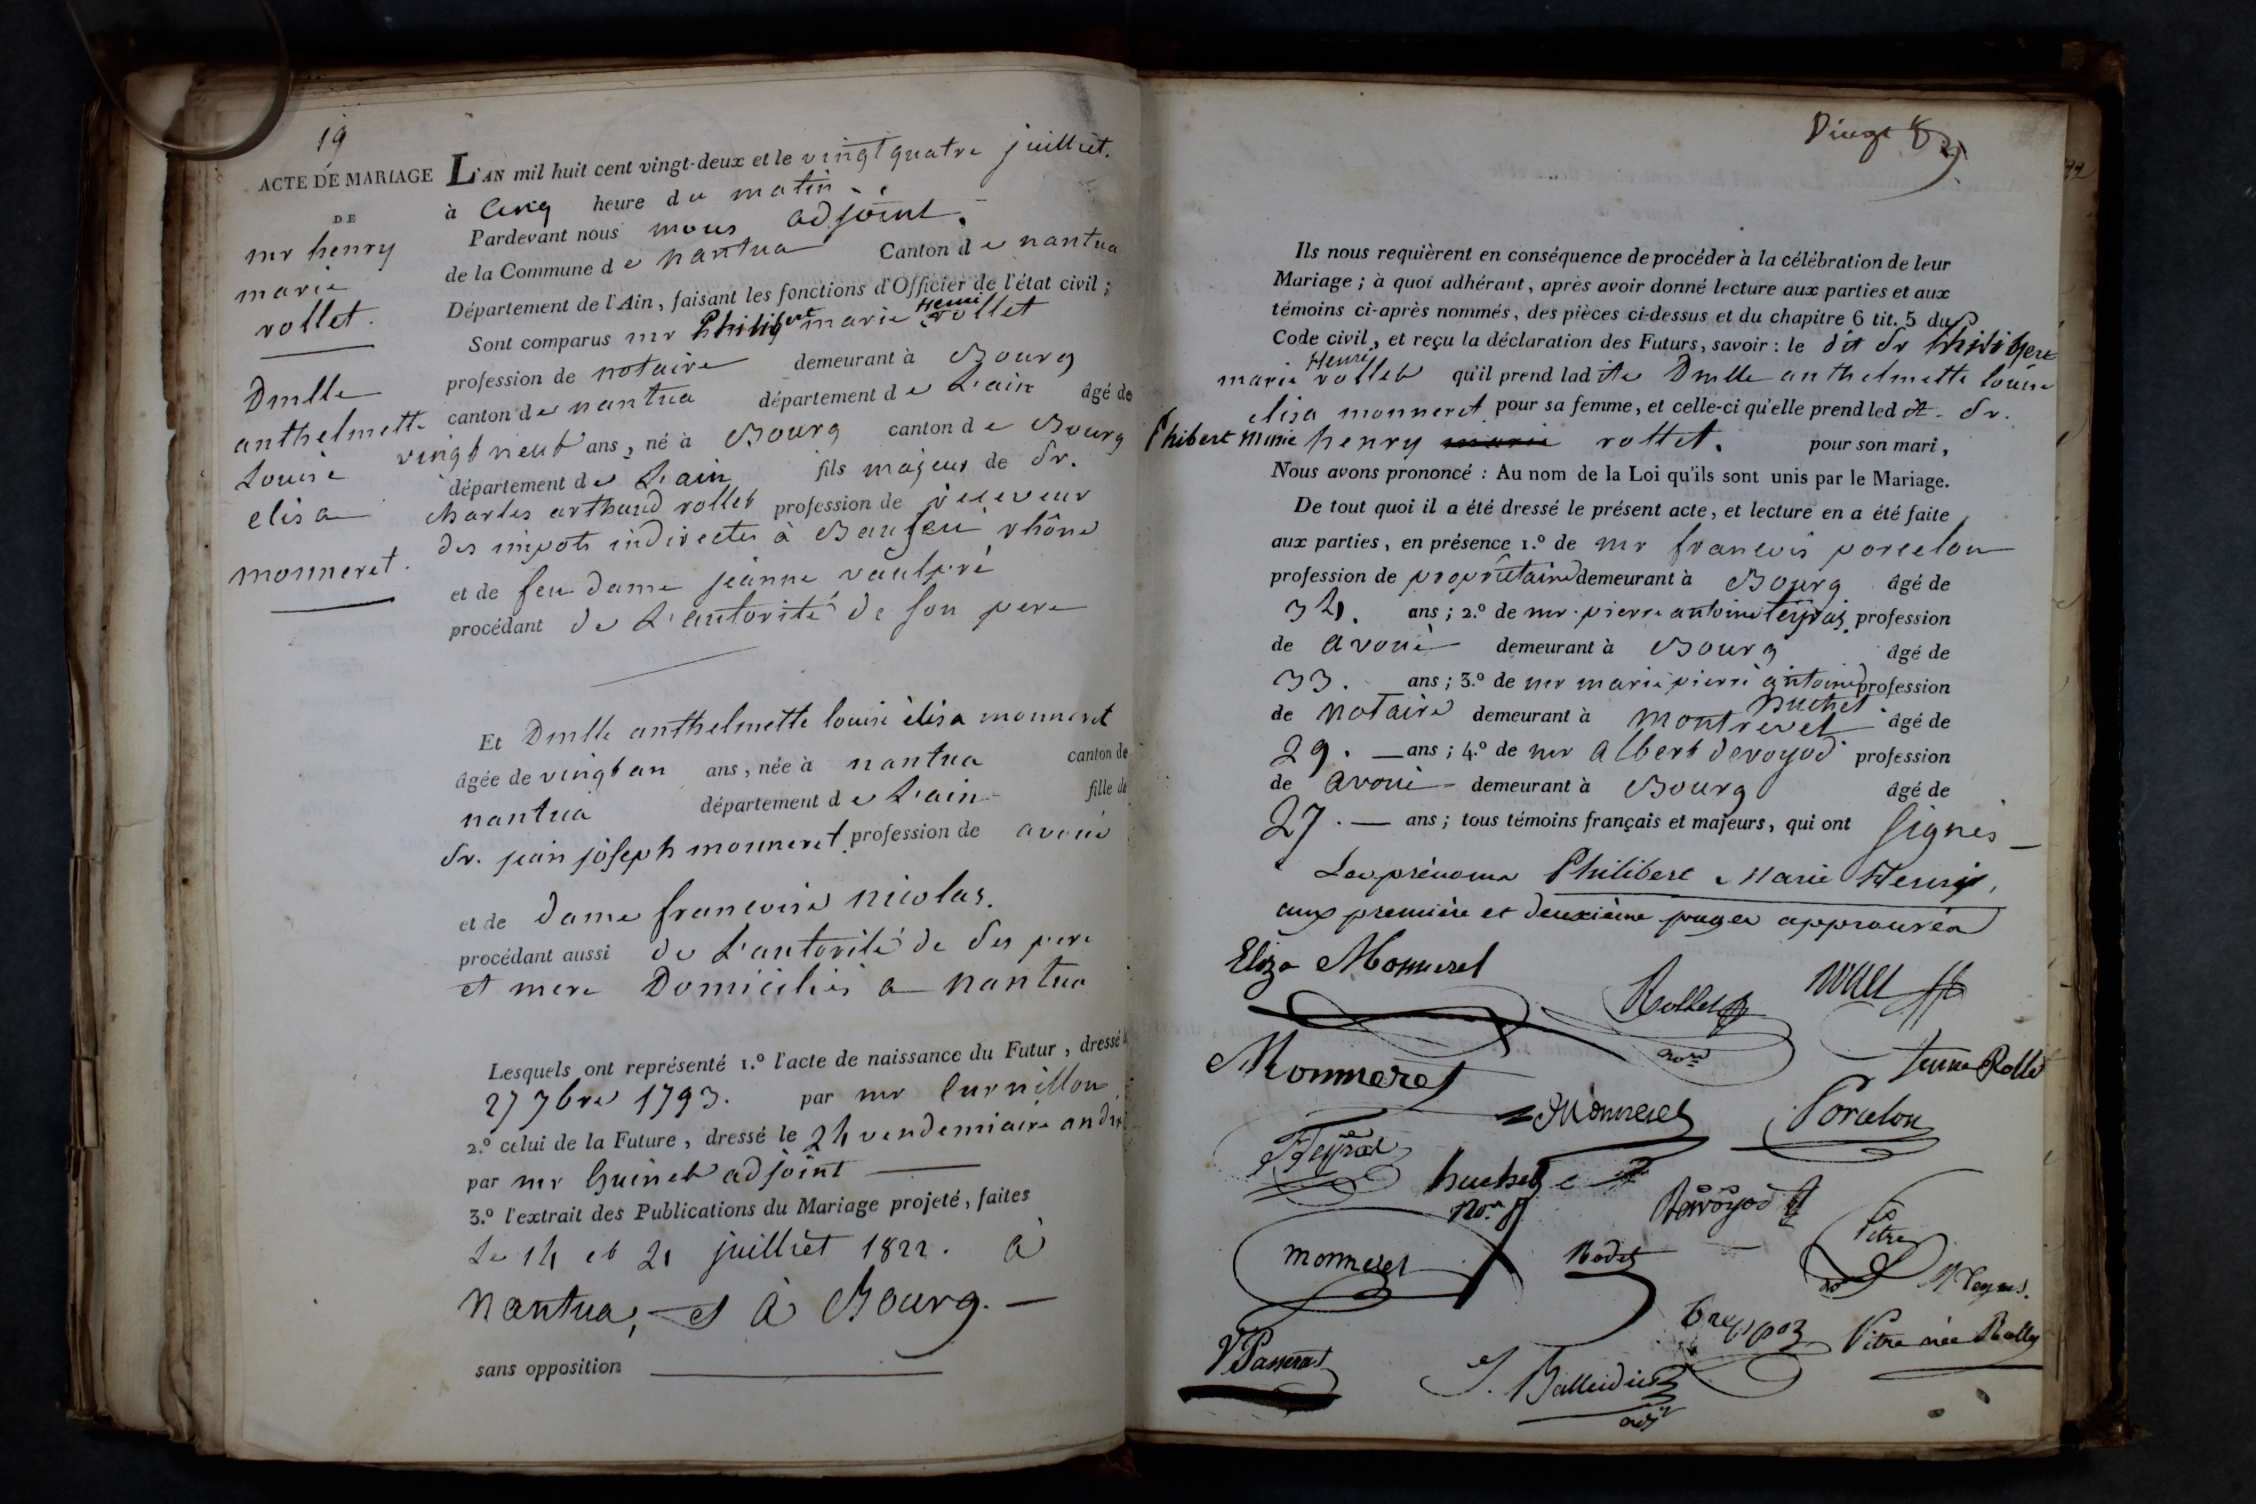 19
ACTE DE MARIAGE
DE
mr henry
marie
rollet.
Dmlle
anthelmette
Louise
elisa
monneret.
L'AN mil huit cent vingt-deux et le vingt quatre juilliet.
à cinq heure du matin
Pardevant nous mous adjoint.
de la Commune de nantua Canton de nantua
Département de l'Ain, faisant les fonctions d'Officier de l'état civil ;
Henri
Sont comparus mr Philibert marie rollet
profession de notaire demeurant à Bourg
canton de nantua département de L'ain âgé de
vingt neuf ans, né à Bourg canton de Bourg
département de L'ain fils majeur de Sr.
charles arthaud rollet profession de receveur
des impots indirectes à Baujeu rhône
et de feu dame jeanne vaulpré
procédant de L'autorité de son pere
Et Dmlle anthelmette louise èlisa monneret
âgée de vingt an ans, née à nantua canton de
nantua département de L'ain fille de
Sr. jean joseph monneret profession de avoué
et de dame francoise nicolas.
procédant aussi de L'autorité de Ses pere
et mere Domiciliés a nantua
Lesquels ont représenté 1.º l'acte de naissance du Futur, dressé le
27 7bre 1793. par mr
2.º celui de la Future, dressé le 24 vendemiaire an dix
par mr Guinet adjoint
3.º l'extrait des Publications du Mariage projeté, faites
Le 14 et 21 juilliet 1822. à
Nantua, et à Bourg. —
sans opposition
Vingt
Ils nous requièrent en conséquence de procéder à la célébration de leur
Mariage ; à quoi adhérant, après avoir donné lecture aux parties et aux
témoins ci-après nommés, des pièces ci-dessus et du chapitre 6 tit. 5 du
Code civil, et reçu la déclaration des Futurs, savoir : le dit Sr Philibert
Henri
marie rollet qu'il prend ladite Dmlle anthelmette louise
elisa monneret pour sa femme, et celle-ci qu'elle prend ledit Sr.
Phibert Marie henry marie rollet. pour son mari,
Nous avons prononcé : Au nom de la Loi qu'ils sont unis par le Mariage.
De tout quoi il a été dressé le présent acte, et lecture en a été faite
aux parties, en présence 1.º de mr francois porcelon
profession de propriétaire demeurant à Bourg âgé de
ans ; 2.º de mr. pierre antoine profession
de avoué demeurant à Bourg âgé de
33. ans ; 3.º de mr marie pierre antoine profession
huchet
de notaire demeurant à montrevel âgé de
29. — ans ; 4.º de mr albert devoyod profession
de avoué demeurant à Bourg âgé de
27. — ans ; tous témoins français et majeurs, qui ont signés —
Les prénoms Philibert Marie Henry,
aux première et deuxième pages approuvés
Eliza Monneret
Rollet
Monneret
Monneret
Porcelon
huchet
Devoyod
monneret
Rodet
Vitre
Vitre née Rollet